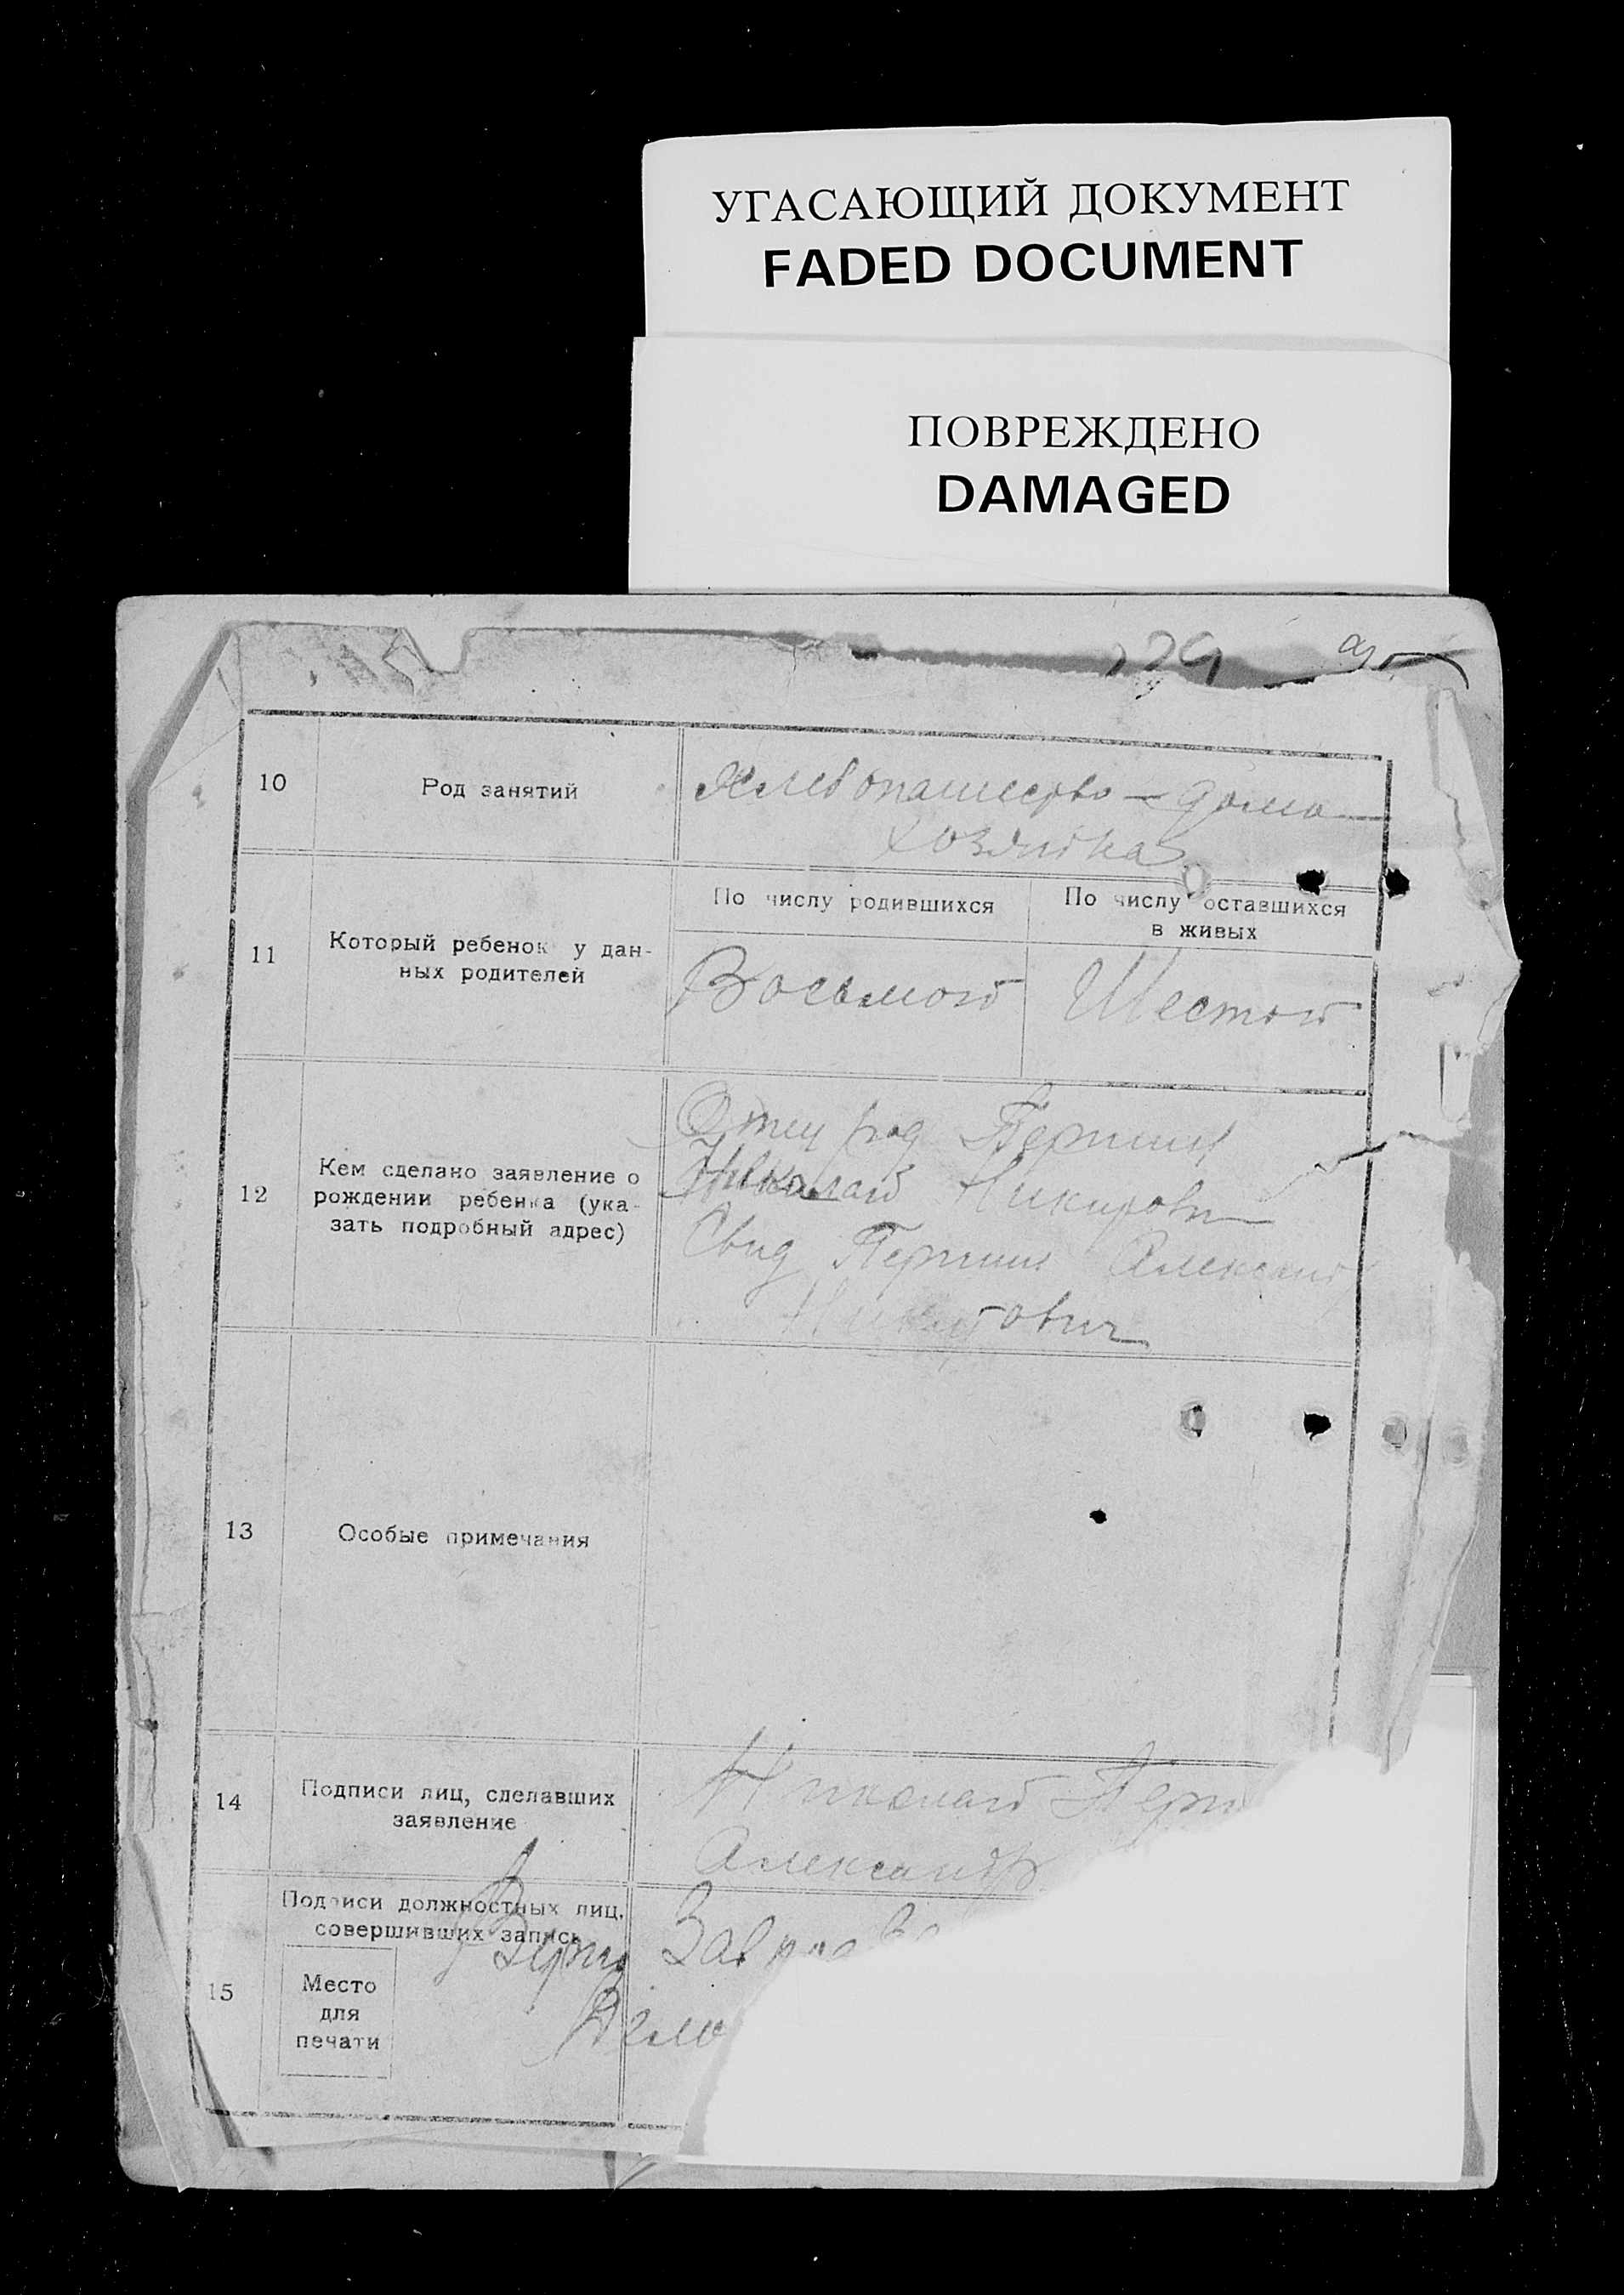 УГАСАЮЩИЙ ДОКУМЕНТ
FADED DOCUMENT
ПОВРЕЖДЕНО
DAMAGED
10
Род занятий
Хлебопашество — домо
хозяйка
11
Который ребенок у дан-
ных родителей
По числу родившихся
По числу оставшихся
в живых
Восьмой
Шестой
12
Кем сделано заявление о
рождении ребенка (ука-
зать подробный адрес)
Отец
Николай
Свид Александ
13
Особые примечания
14
Подписи лиц, сделавших
заявление
Николай
Александр
15
Подписи должностных лиц,
совершивших запись
Место
для
печати
Верно